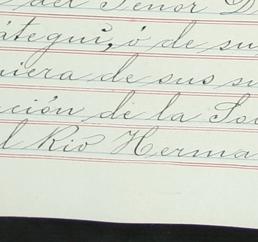 del Señor D
átegui, ó de su
iera de sus su
ción de la So
l Rio Herma